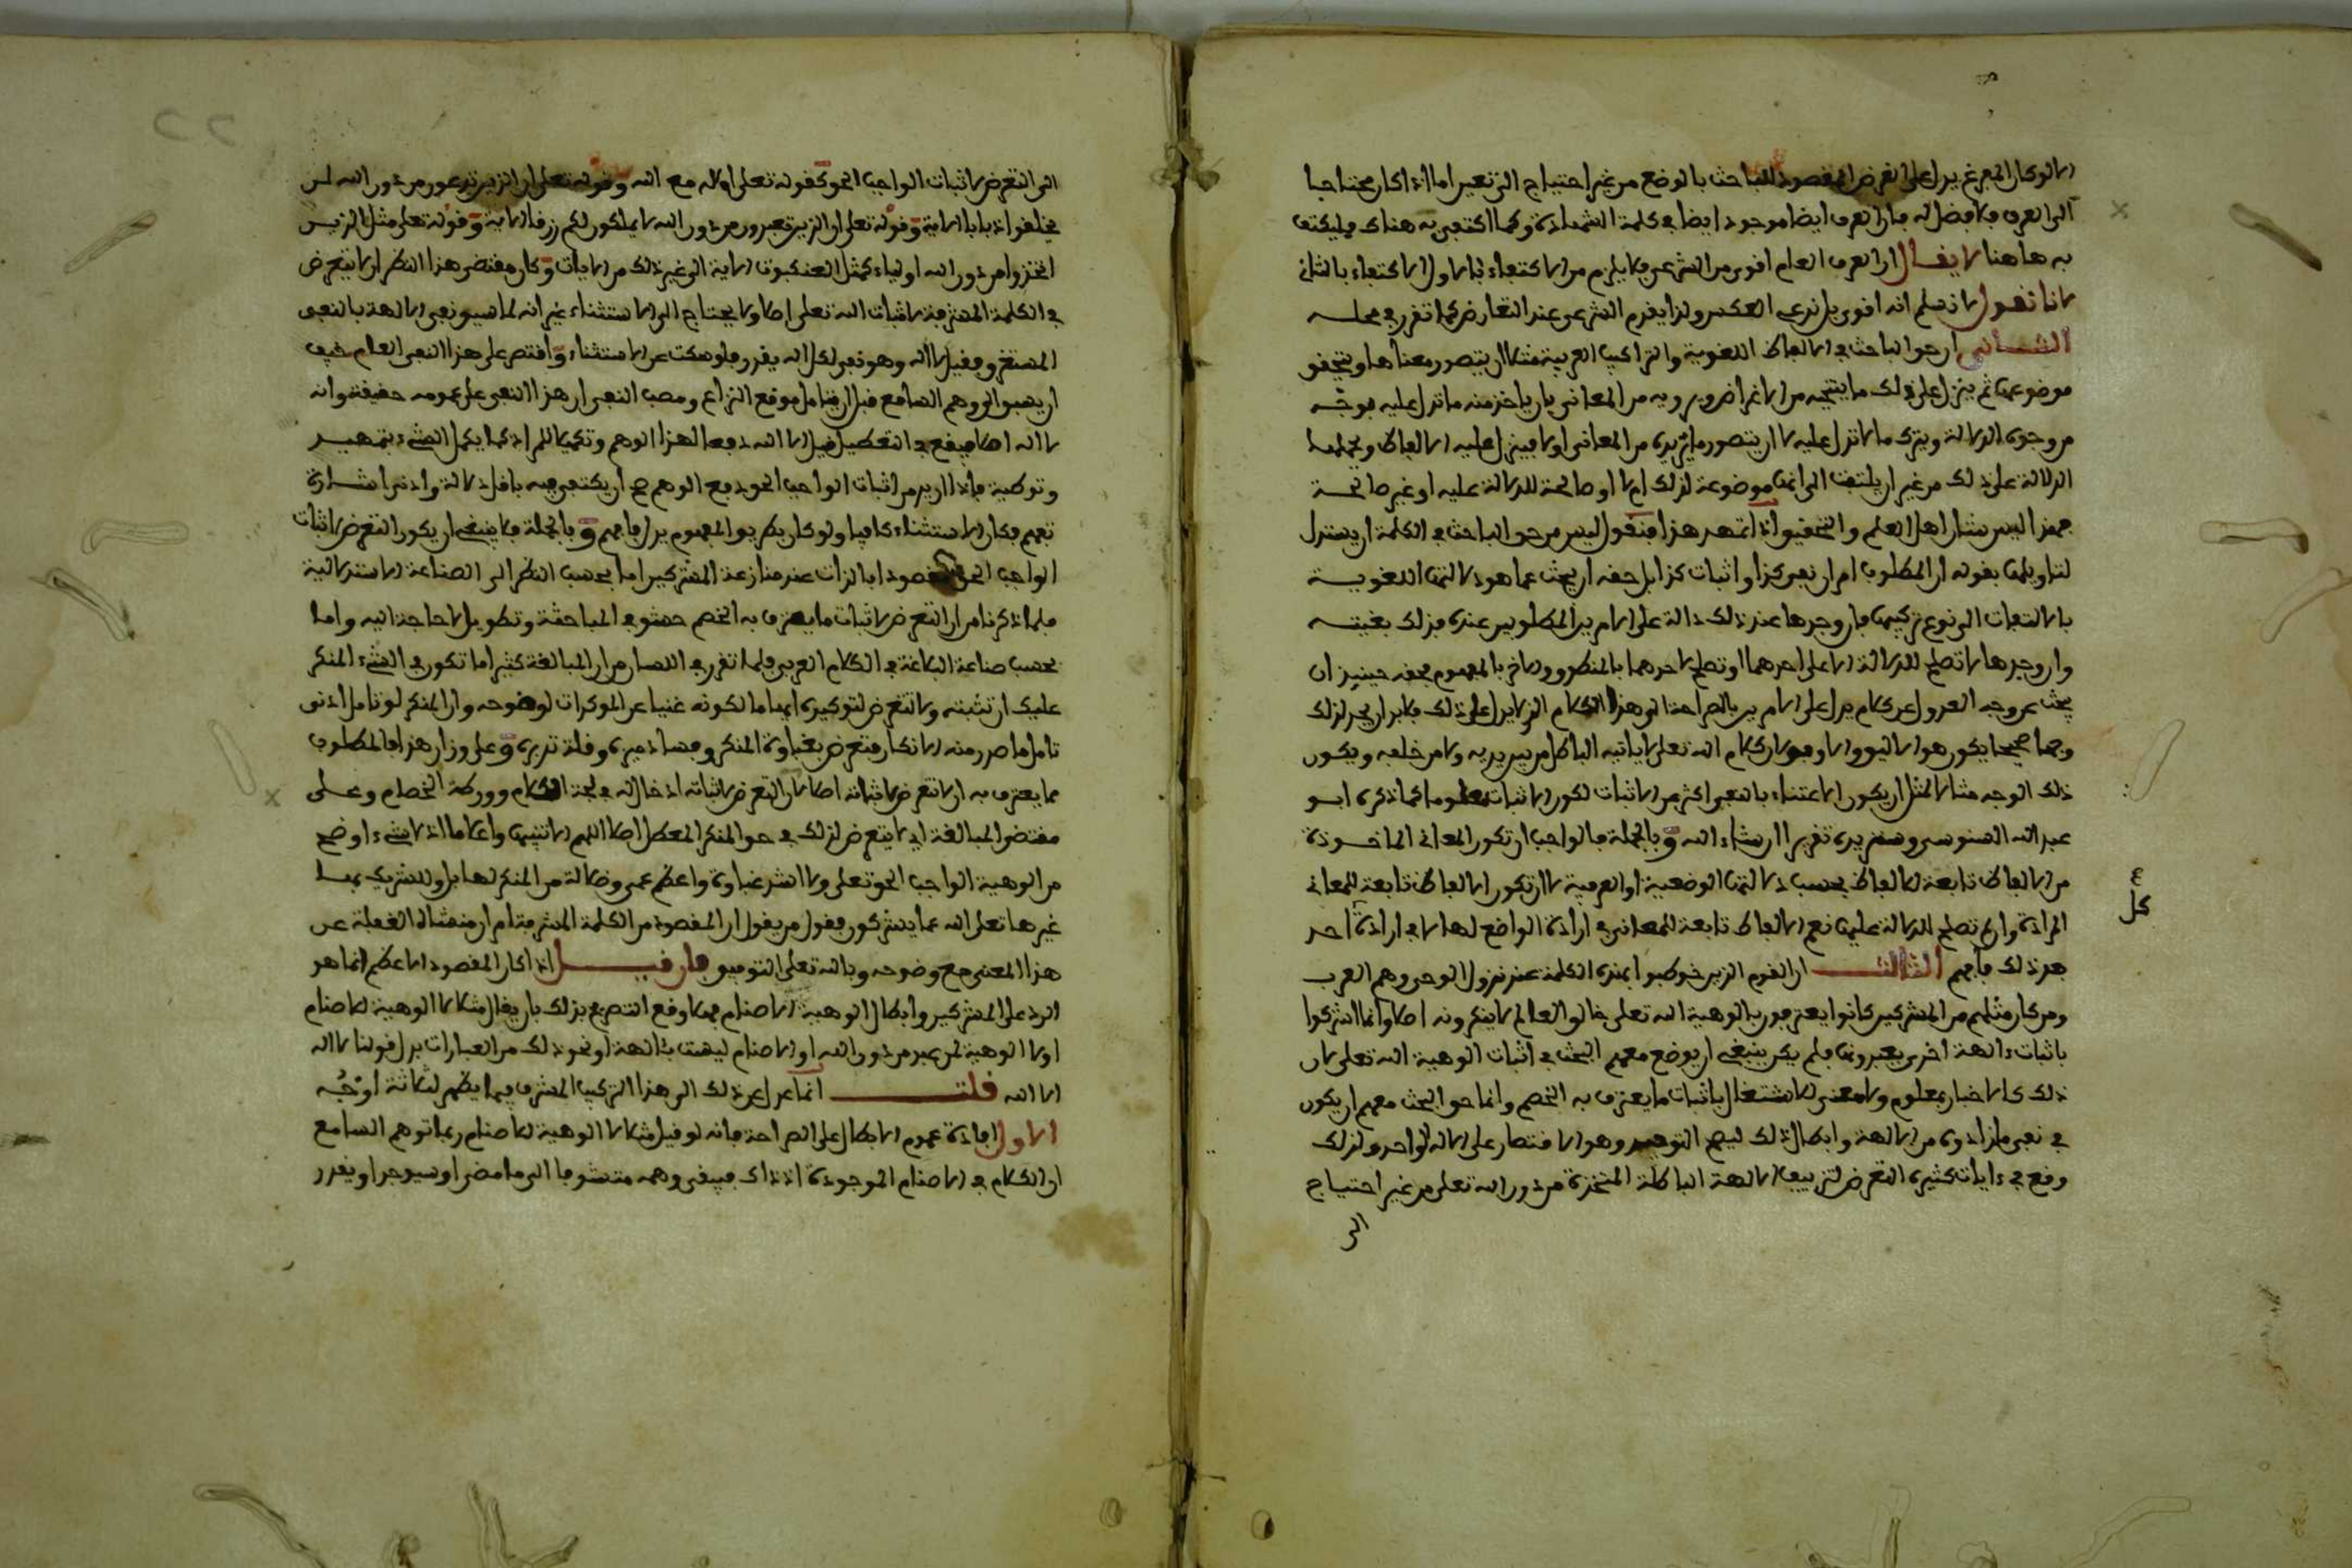 الا لو كان المفرغ يدل على الغرض المقصود للباحث بالوضع من غير احتياج الى تغيير اما اذا كان محتاجا
الى العرف فلا فضل له فان العرف ايضا موجود ايضا في كلمة الشهادة وكما اكتفي به هناك فليكتف
به هاهنا لا يقال ان العرف العام اقوى من الشرعي فلا يلزم من الاكتفاء بالاول الاكتفاء بالثاني
لانا نقول لا نسلم انه اقوى بل ندعي العكس ولذا يقدم الشرعي عند التعارض كما تقرر في محله
الثاني ان حق الباحث في الالفاظ اللغوية والتراكيب العربية مثلا ان يتصور معناها ويتحقق
موضوعها ثم ينزل على ذلك ما ينتجه من الاغراض ويرويه من المعاني بان ياخذ منه ما تدل عليه بوجه
من وجوه الدلالة ويترك ما لا تدل عليه لا ان يتصور ما يريده من المعاني اولا فينزل عليه الالفاظ ويحملها
الدلالة على ذلك من غير ان يلتفت الى انها موضوعة لذلك ام لا او صالحة للدلالة عليه او غير صالحة
فهذا ليس شان اهل العلم والتحقيق اذا تمهد هذا فنقول ليس من حق الباحث في الكلمة ان يستدل
لتاويلها بقوله ان المطلوب امران نفي كذا واثبات كذا بل حقه ان يبحث عما هو دلالتها اللغوية
بالالتفات الى نوع تركيبها فان وجدها عند ذلك دالة على الامرين المطلوبين عنده فذلك بغيته
وان وجدها لا تصلح للدلالة الا على احدهما او تصلح لاحدهما بالمنطوق والاخر بالمفهوم فحقه حينئذ ان
يبحث عن وجه العدول عن كلام يدل على الامرين بالصراحة الى هذا الكلام الذي لا يدل على ذلك فلابد ان يجد لذلك
وجها صحيحا يكون هو الاليق والاوفق لان كلام الله تعلى لا ياتيه الباطل من بين يديه ولا من خلفه ويكون
ذلك الوجه مثلا المثل ان يكون الاعتناء بالنفي اكثر من الاثبات لكون الاثبات معلوما كما ذكره ابو
عبد الله السنوسي وسنزيده تقريرا ان شاء الله وبالجملة فالواجب ان تكون المعاني الماخوذة
من الالفاظ تابعة للالفاظ بحسب دلالتها الوضعية او العرفية لا ان تكون الالفاظ تابعة للمعاني
المرادة وان لم تصلح الدلالة عليها نعم الالفاظ تابعة للمعاني في ارادة الواضع لها لا في ارادة احد
بعد ذلك فافهم الثالث ان القوم الذين خوطبوا بهذه الكلمة عند نزول الوحي وهم العرب
ومن كان مثلهم من المشركين كانوا يعترفون بالوهية الله تعلى خالق العالم لا ينكرونه اصلا وانما اشركوا
باثبات ءالهة اخرى يعبدونها فلم يكن ينبغي ان يوضع معهم البحث في اثبات الوهية الله تعلى لان
ذلك كالاخبار بمعلوم ولا معنى للاشتغال باثبات ما يعترف به الخصم وانما حق البحث معهم ان يكون
في نفي ما زادوه من الالهة وابطال ذلك ليصح التوحيد وهو الاقتصار على الاله الواحد ولذلك
وقع في ءايات كثيرة التعرض لتزييف الالهة الباطلة المتخذة من دون الله تعلى من غير احتياج
الى
كل
الى التعرض لاثبات الواجب الحق كقوله تعلى اءلاه مع الله وقوله تعلى ان الذين تدعون من دون الله لن
يخلقوا ذبابا الاية وقوله تعلى ان الذين تعبدون من دون الله لا يملكون لكم رزقا الاية وقوله تعلى مثل الذين
اتخذوا من دون الله اولياء كمثل العنكبوت الاية الى غير ذلك من الايات وكان مقتضى هذا النظر ان لا يتعرض
في الكلمة المشرفة لاثبات الله تعلى اصلا ولا يحتاج الى الاستثناء غير انه لما سيق نفي الالهة بالنفي
المستغرق فقيل لا اله وهو نفي لكل اله يقدر فلو سكت عن الاستثناء واقتصر على هذا النفي العام خيف
ان يسبق الى وهم السامع قبل ان يتامل موقع النزاع ومصب النفي ان هذا النفي على عمومه حقيقة وانه
لا اله اصلا فيقع في التعطيل فقيل الا الله دفعا لهذا الوهم وتكميلا للمراد كما يكمل الشيء بتمهيد
وتوطية فاذا اريد من اثبات الواجب الحق دفع الوهم صح ان يكتفى فيه باقل دلالة وادنى اشارة
تفهم فكان الاستثناء كافيا ولو كان بطريق المفهوم يدل فافهم وبالجملة فلا ينبغي ان يكون التعرض لاثبات
الواجب الحق مقصودا بالذات عند منازعة المشركين اما بحسب النظر الى الصناعة الاستدلالية
فلما ذكرنا من ان التعرض لاثبات ما يعترف به الخصم حشو في المباحثة وتطويل لا حاجة اليه واما
بحسب صناعة البلاغة في الكلام العربي فلما تقرر في اللسان من ان المبالغة كثيرا ما تكون في الشيء المنكر
عليك ان تثبته ولا تتعرض لتوكيده ايهاما لكونه غنيا عن الموكدات لوضوحه وان المنكر لو تامل ادنى
تامل ما صدر منه الانكار فتعرض بغباوة المنكر وفساد ميزه وقلة تدبره وعلى وزان هذا فالمطلوب
مما يعترف به ان لا تتعرض لاثباته اصلا لان التعرض لاثباته ادخال له في لجة الكلام وورطة الخصام وعلى
مقتضى المبالغة ان لا يتعرض لذلك في حق المنكر المعطل اصلا اللهم الا تنبيها واعلاما اذ لا شيء اوضح
من الوهية الواجب الحق تعلى ولا اشد غباوة واعظم عمى وضلالة من المنكر لها بل وللشريك بها
غيرها تعلى الله عما يشركون فقول من يقول ان المقصود من الكلمة المشرفة امران منشاه الغفلة عن
هذا المعنى مع وضوحه وبالله تعلى التوفيق فان قيل اذا كان المقصود الاعظم انما هو
الرد على المشركين وابطال الوهية الاصنام فهلا وقع التصريح بذلك بان يقال مثلا لا الوهية للاصنام
او لا الوهية لمن عبد من دون الله او الاصنام ليست بئالهة او نحو ذلك من العبارات بدل قولنا لا اله
الا الله قلت انما عدل عن ذلك الى هذا التركيب المشرف فيما يظهر لثلاثة اوجه
الاول افادة عموم الابطال على الصراحة فانه لو قيل مثلا لا الوهية للاصنام ربما توهم السامع
ان الكلام في الاصنام الموجودة اذ ذاك فيبقى وهمه متشوفا الى ما مضى او سيوجد او يقدر